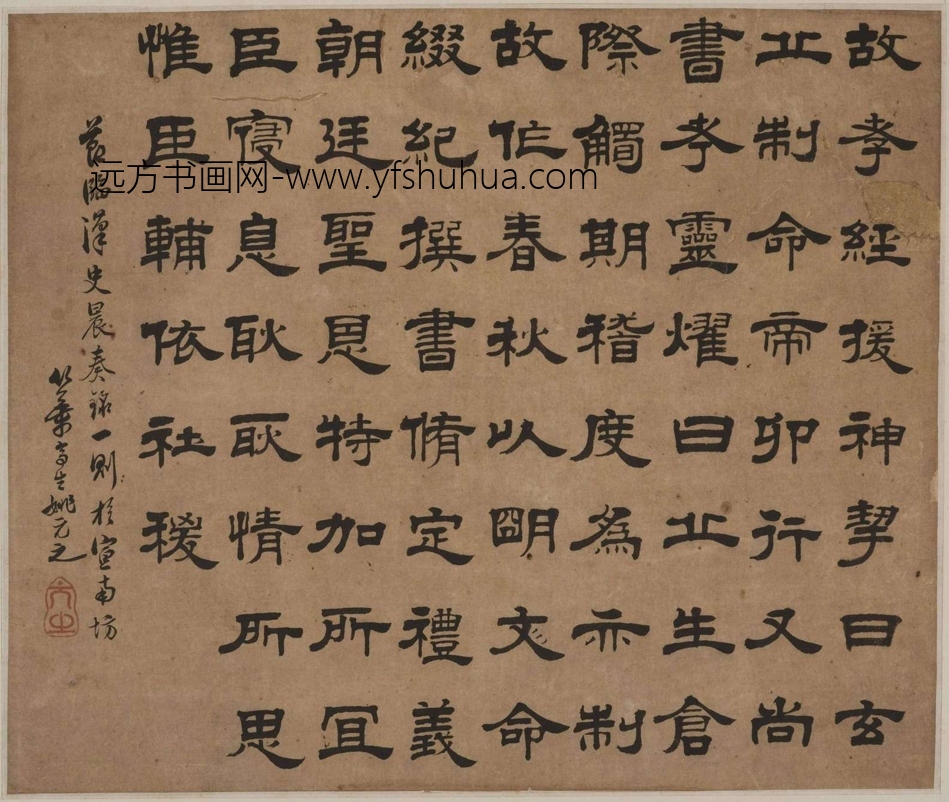 故孝經援神挈曰玄
丘制命帝卯行又尚
書考靈燿曰丘生倉
際觸期稽度為赤制
故作春秋以朙文命
綴紀撰書脩定禮義
朝廷聖恩特加所宜
臣寑息耿耿情所思
惟臣輔依社稷
節臨漢史晨奏銘一則於宣南坊
竹葉亭生姚元之
元之
远方书画网-www.yfshuhua.com